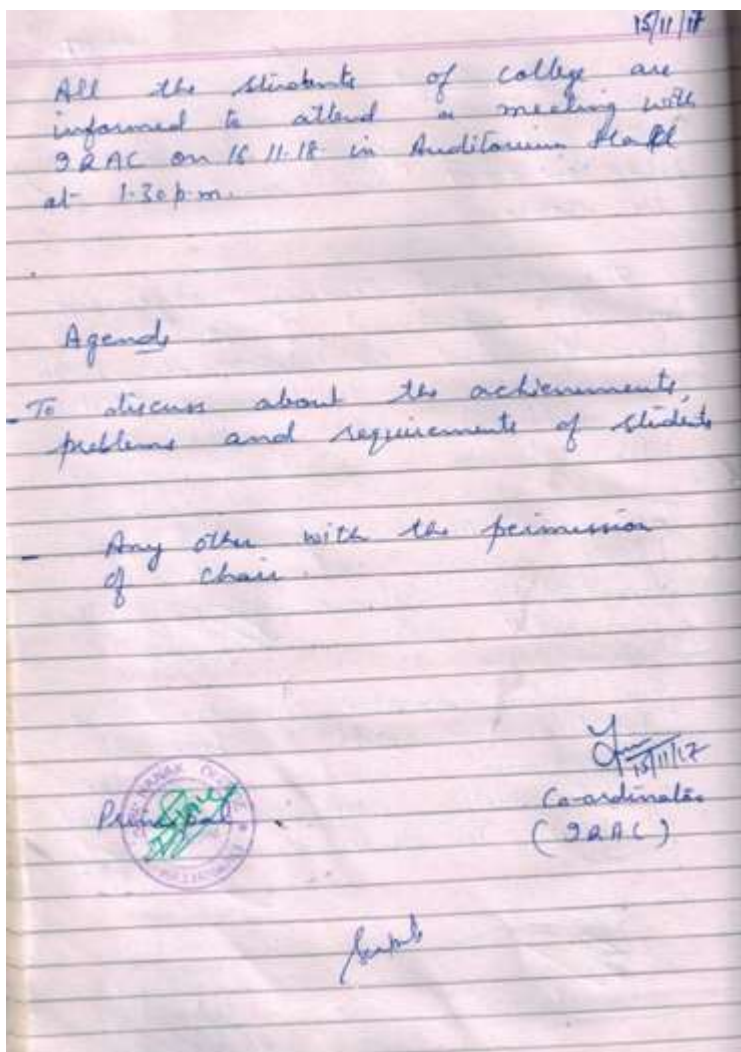 15/11/17
All the students of college are
informed to attend a meeting with
IQAC on 16.11.18 in Auditorium Hall
at 1.30 p.m.
Agenda
- To discuss about the achievements,
problems and requirements of students
- Any other with the permission
of chair.
15/11/17
Principal
Co-ordinator
(IQAC)